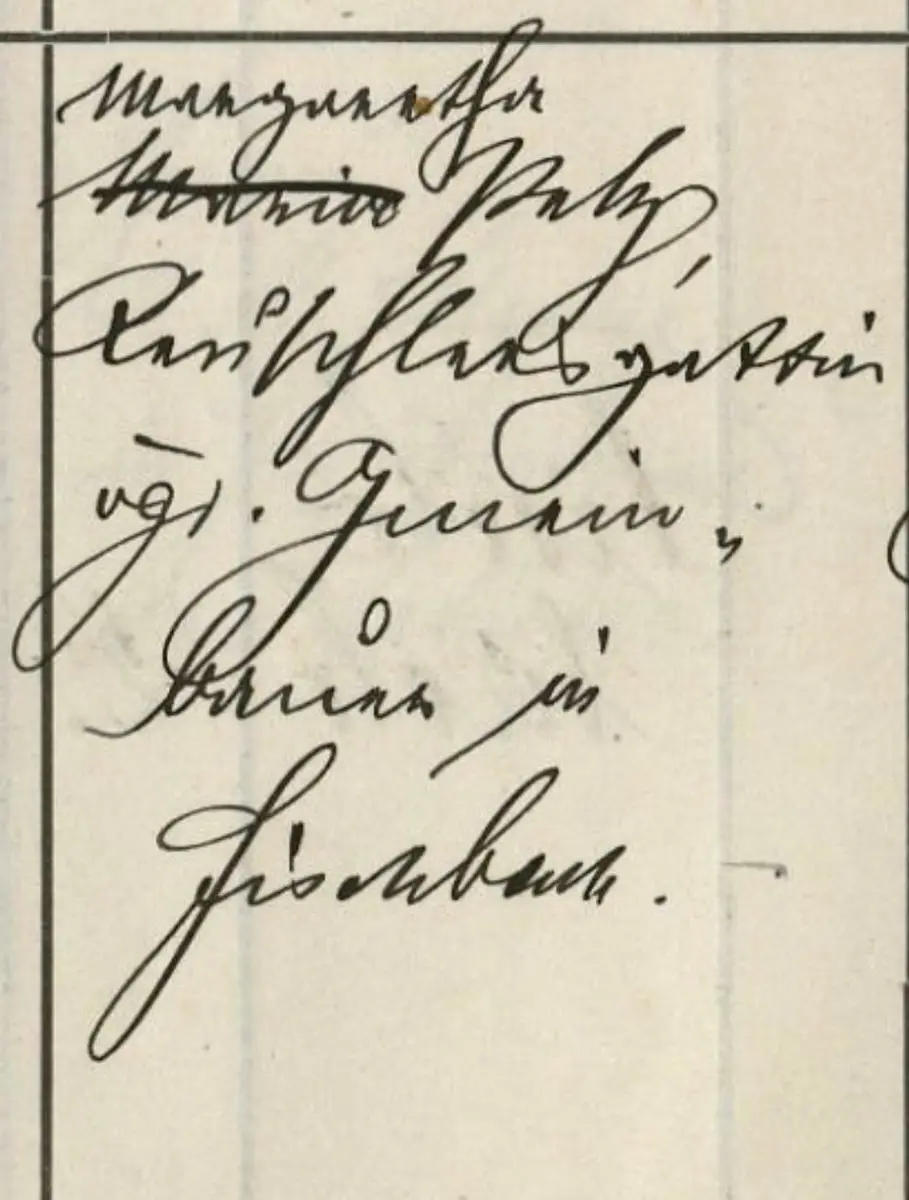 Margaretha
Maria Pelz,
Keuschlersgattin
vgr. Gmein„
bauer in
Fischbach.